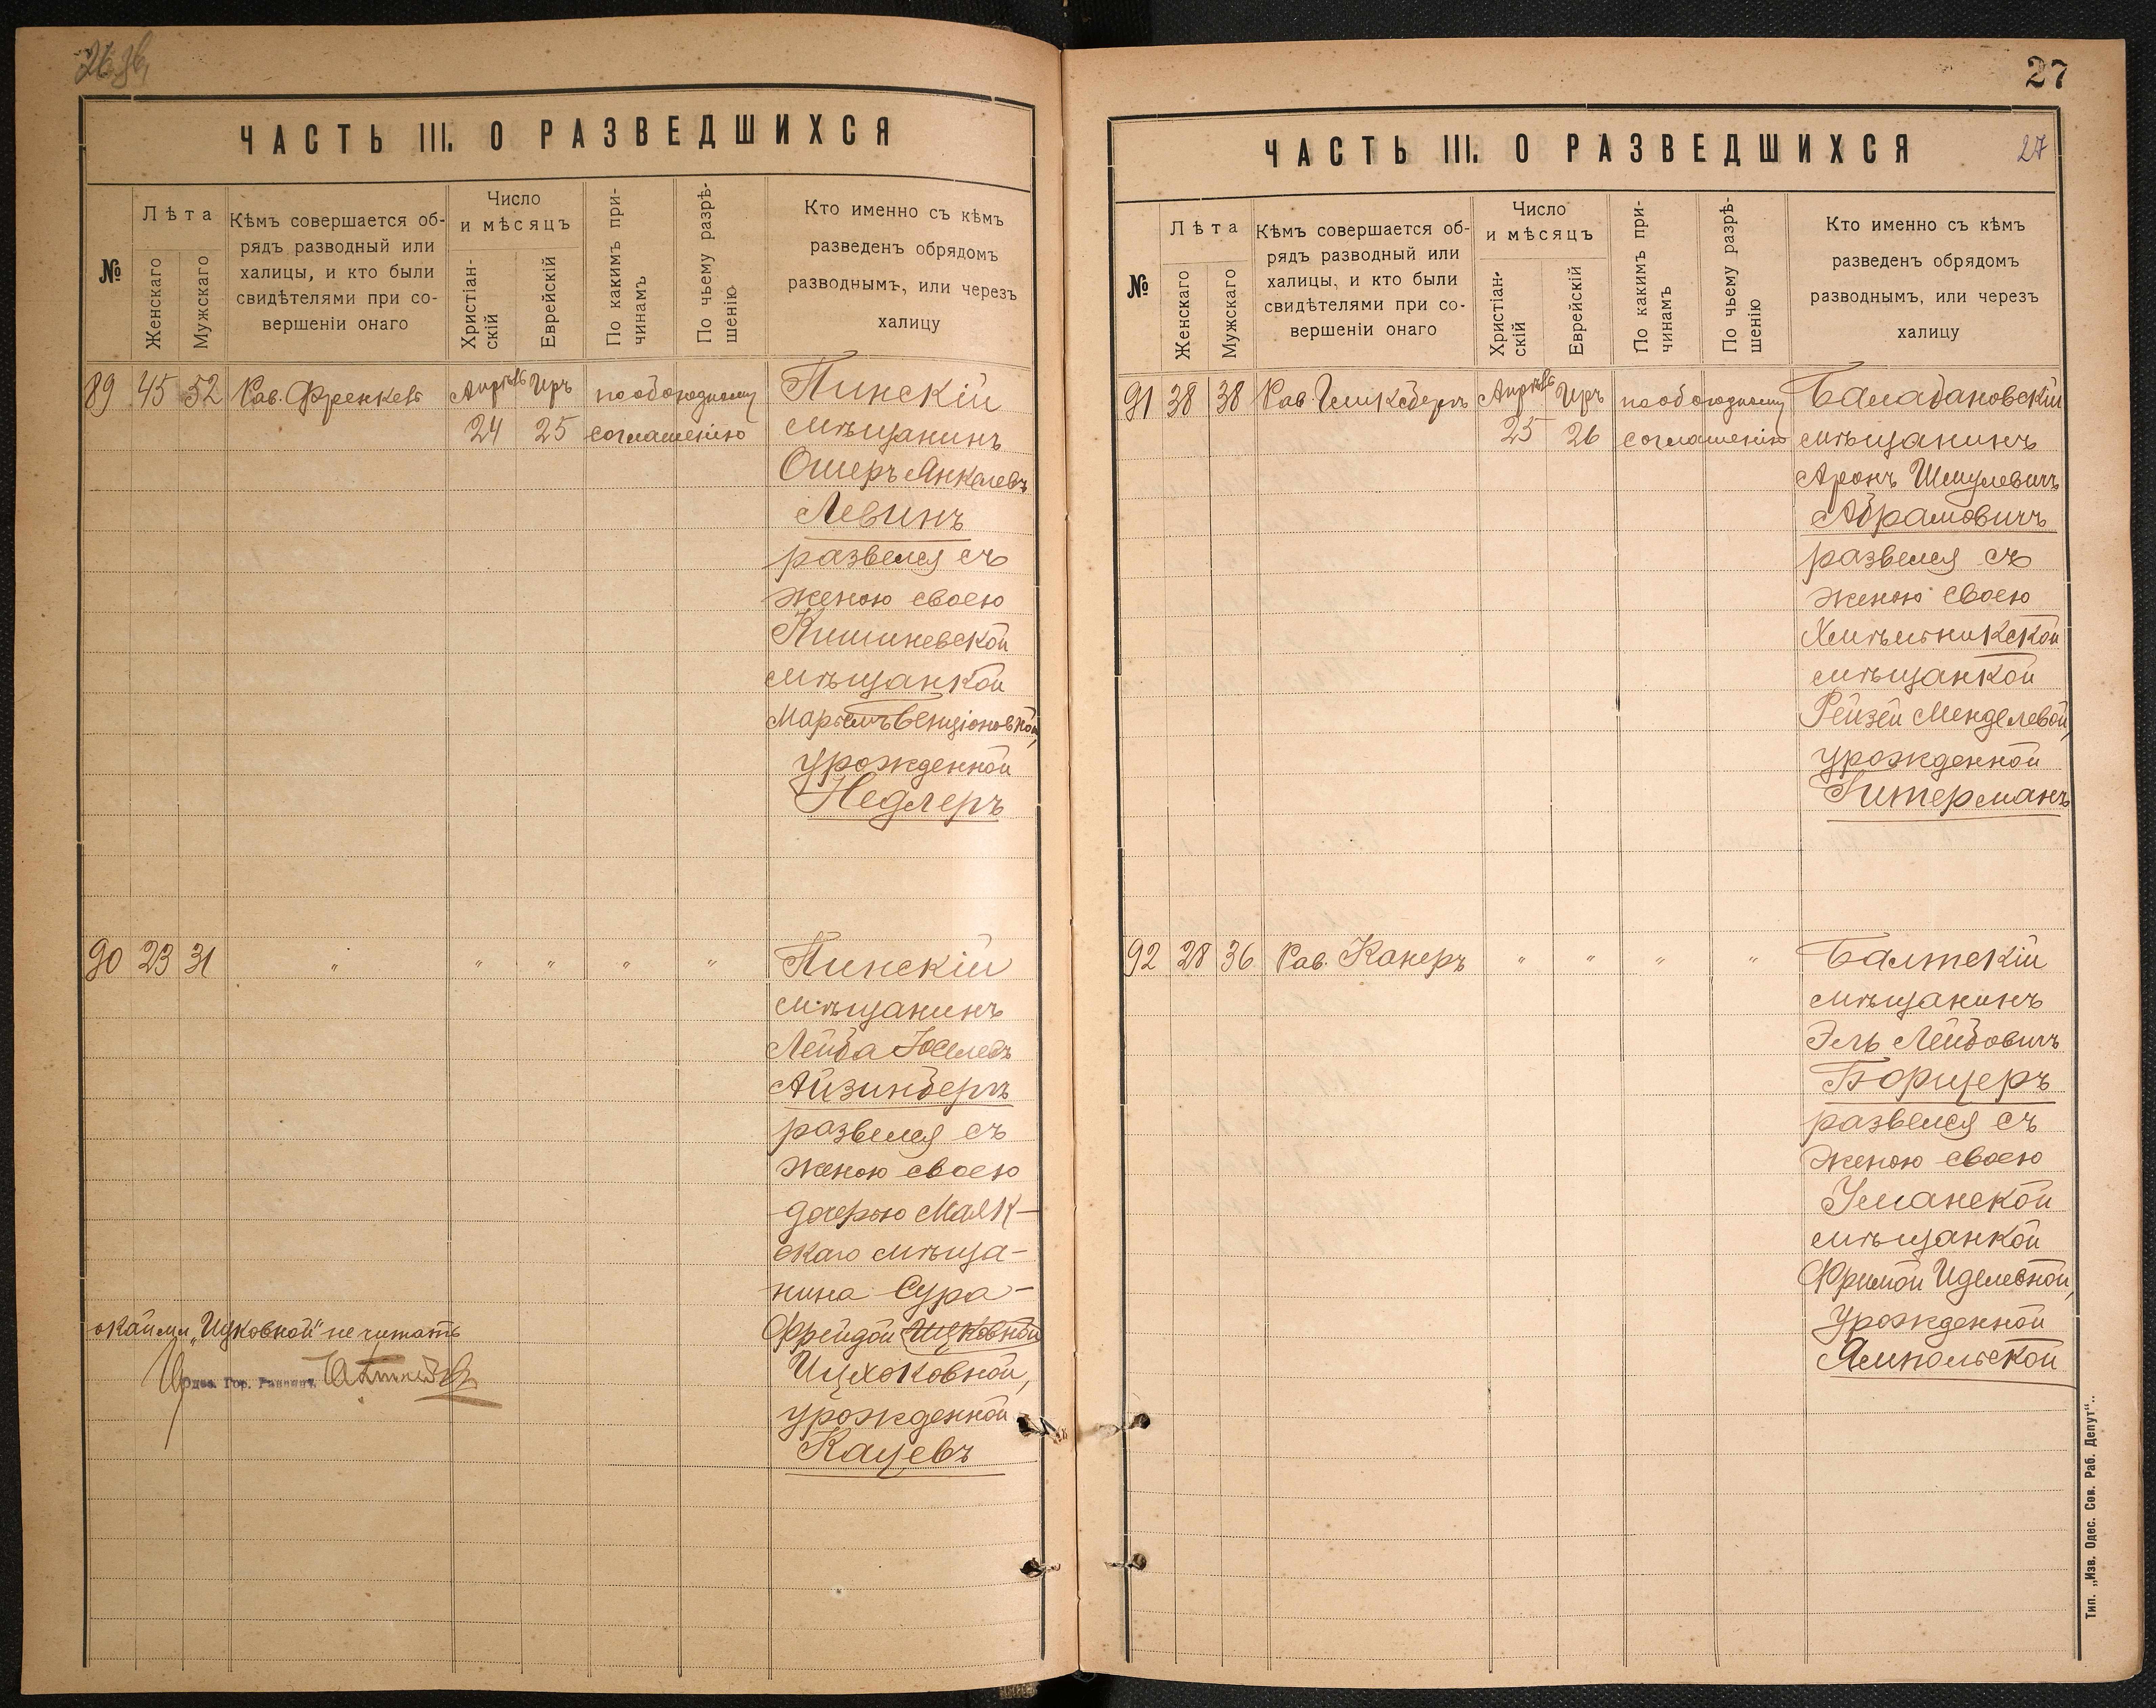 ЧАСТЬ III. О РАЗВЕДШИХСЯ
№
Лѣта
Женскаго
Мужскаго
Кѣмъ совершается об-
рядъ разводный или
халицы, и кто были
свидѣтелями при со-
вершеніи онаго
Число
и мѣсяцъ
Христіан-
скій
Еврейскій
По какимъ при-
чинамъ
По чьему разрѣ-
шенію
Кто именно съ кѣмъ
разведенъ обрядомъ
разводнымъ, или черезъ
халицу
89 45 52 Рав. Френкель Апрѣль Иръ по обоюдному Пинскій
24 25 соглашенію мѣщанинъ
Ошеръ Янкелевъ
Левинъ
развелся съ
женою своею
Кишиневской
мѣщанкой
Марьемъ Бенціоновной,
урожденной
Недлеръ
90 23 31 " " " " " Пинскій
мѣщанинъ
Лейба Іоселевъ
Айзинбергъ
развелся съ
женою своею
дочерью Маяк-
скаго мѣща-
нина Сура-
Фрейдой Ицковной
Ицхоковной,
урожденной
Кацевъ
"Ицковной" не читать
Одес. Гор. Раввинъ
27
ЧАСТЬ III. О РАЗВЕДШИХСЯ
27
№
Лѣта
Женскаго
Мужскаго
Кѣмъ совершается об-
рядъ разводный или
халицы, и кто были
свидѣтелями при со-
вершеніи онаго
Число
и мѣсяцъ
Христіан-
скій
Еврейскій
По какимъ при-
чинамъ
По чьему разрѣ-
шенію
Кто именно съ кѣмъ
разведенъ обрядомъ
разводнымъ, или черезъ
халицу
91 38 38 Рав. Апрѣль Иръ по обоюдному Балабановскій
25 26 соглашенію мѣщанинъ
Аронъ Шмулевичъ
Абрамовичъ
развелся съ
женою своею
Хмѣльникской
мѣщанкой
Рейзей Менделевой,
урожденной
Гитерманъ
92 28 36 Рав. Канеръ " " " " Балтскій
мѣщанинъ
Эль Лейбовичъ
Борщеръ
развелся съ
женою своею
Уманской
мѣщанкой
Фримой Иделевной,
урожденной
Ямпольской
Тип. „Изв. Одес. Сов. Раб. Депут".